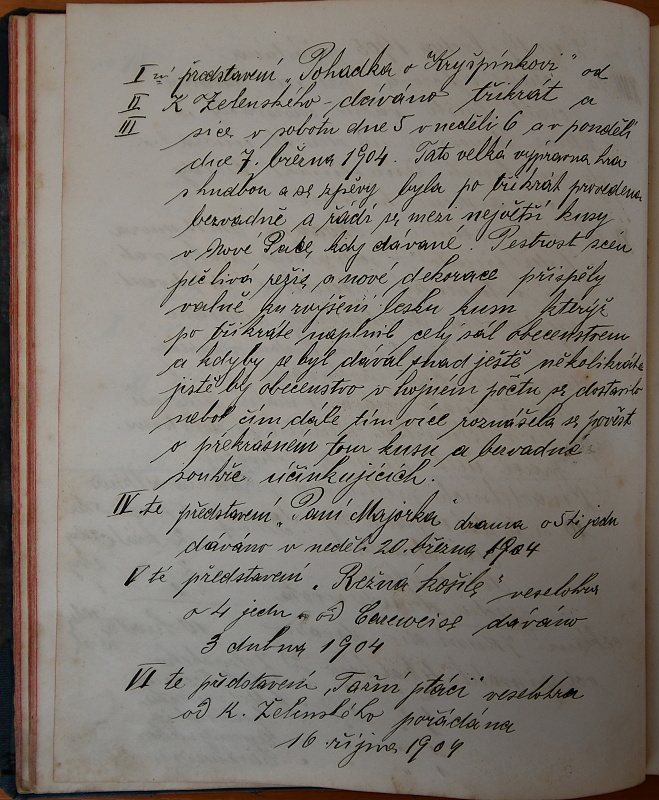 I ní představení „Pohádka o Kryšpínkovi" od
II K Želenského - dáváno třikrát a
III sice v sobotu dne 5 v neděli 6 a v pondělí
dne 7. března 1904. Tato velká výpravná hra
s hudbou a se zpěvy byla po třikrát provedena
bezvadně a řádí se mezi největší kusy
v Nové Pace, kdy dávané. Pestrost scén
pečlivá režie, a nové dekorace přispěly
valně ku zvýšení lesku kusu kterýž
po třikráte naplnil celý sál obecenstvem
a kdyby se byl dával snad ještě několikráte
jistě by obecenstvo v hojném počtu se dostavilo
neboť čím dále tím více roznášela se pověst
o překrásném tom kusu a bezvadné
souhře účinkujících.
IV te představení „Paní Majorka" drama o 5ti jedn
dáváno v neděli 20. března 1904
V té představení „Režná košile" veselohra
o 4 jedn. od dáváno
3 dubna 1904
VI te představení „Tažní ptáci" veselohra
od K. Želenského pořádána
16 října 1904